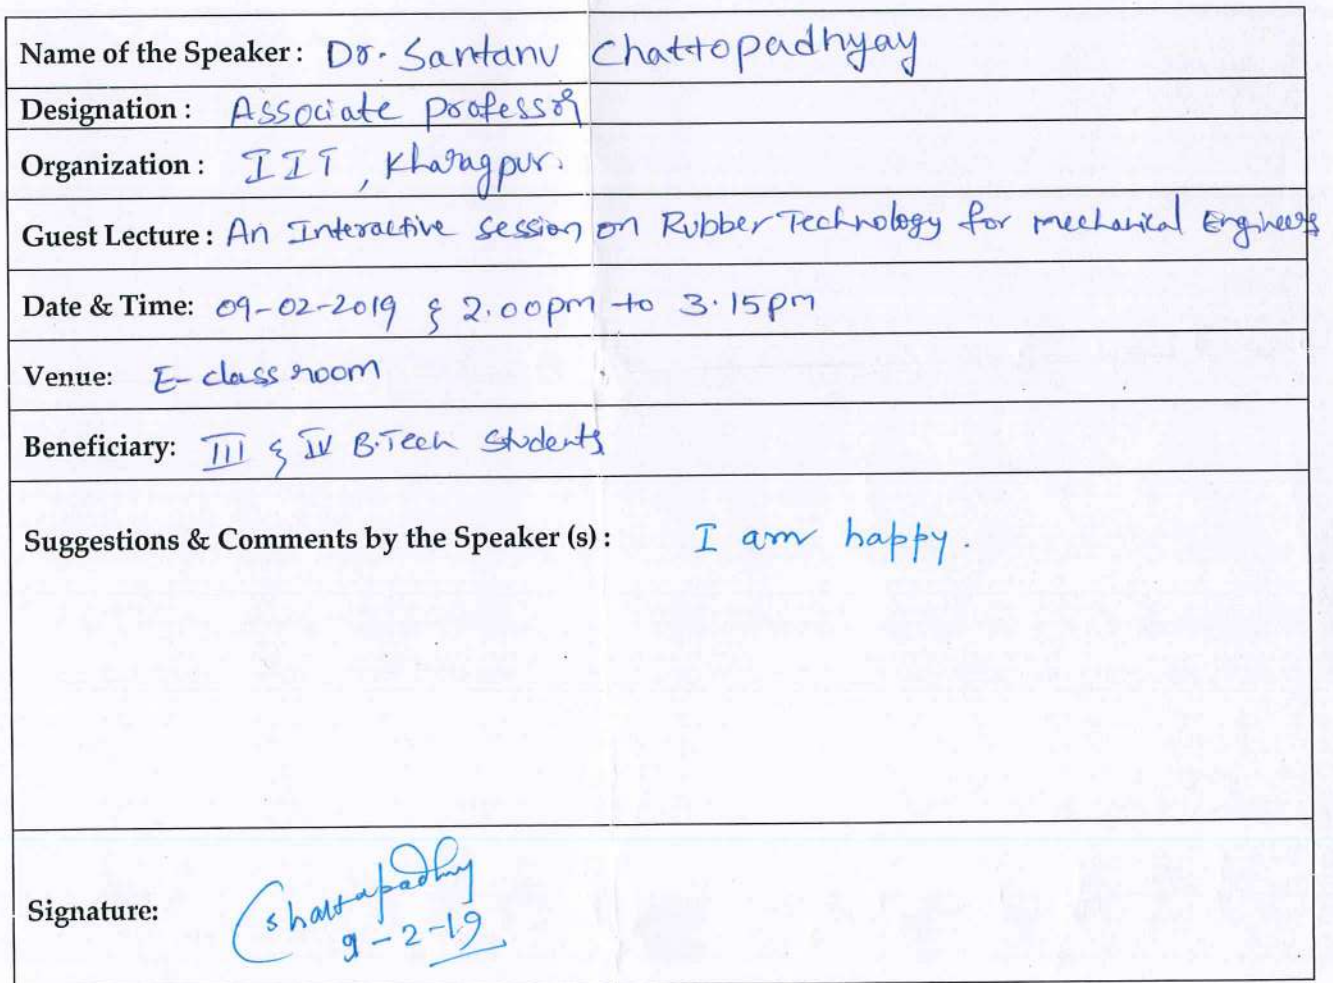 Name of the Speaker: Dr. Santanu Chattopadhyay
Designation: Associate Professor
Organization: IIT, Kharagpur.
Guest Lecture: An Interactive session on Rubber Technology for mechanical Engineers
Date & Time: 09-02-2019 & 2.00pm to 3.15pm
Venue: E-class room
Beneficiary: III & IV B.Tech Students
Suggestions & Comments by the Speaker (s): I am happy.
Signature: Chattopadhyay
9-2-19